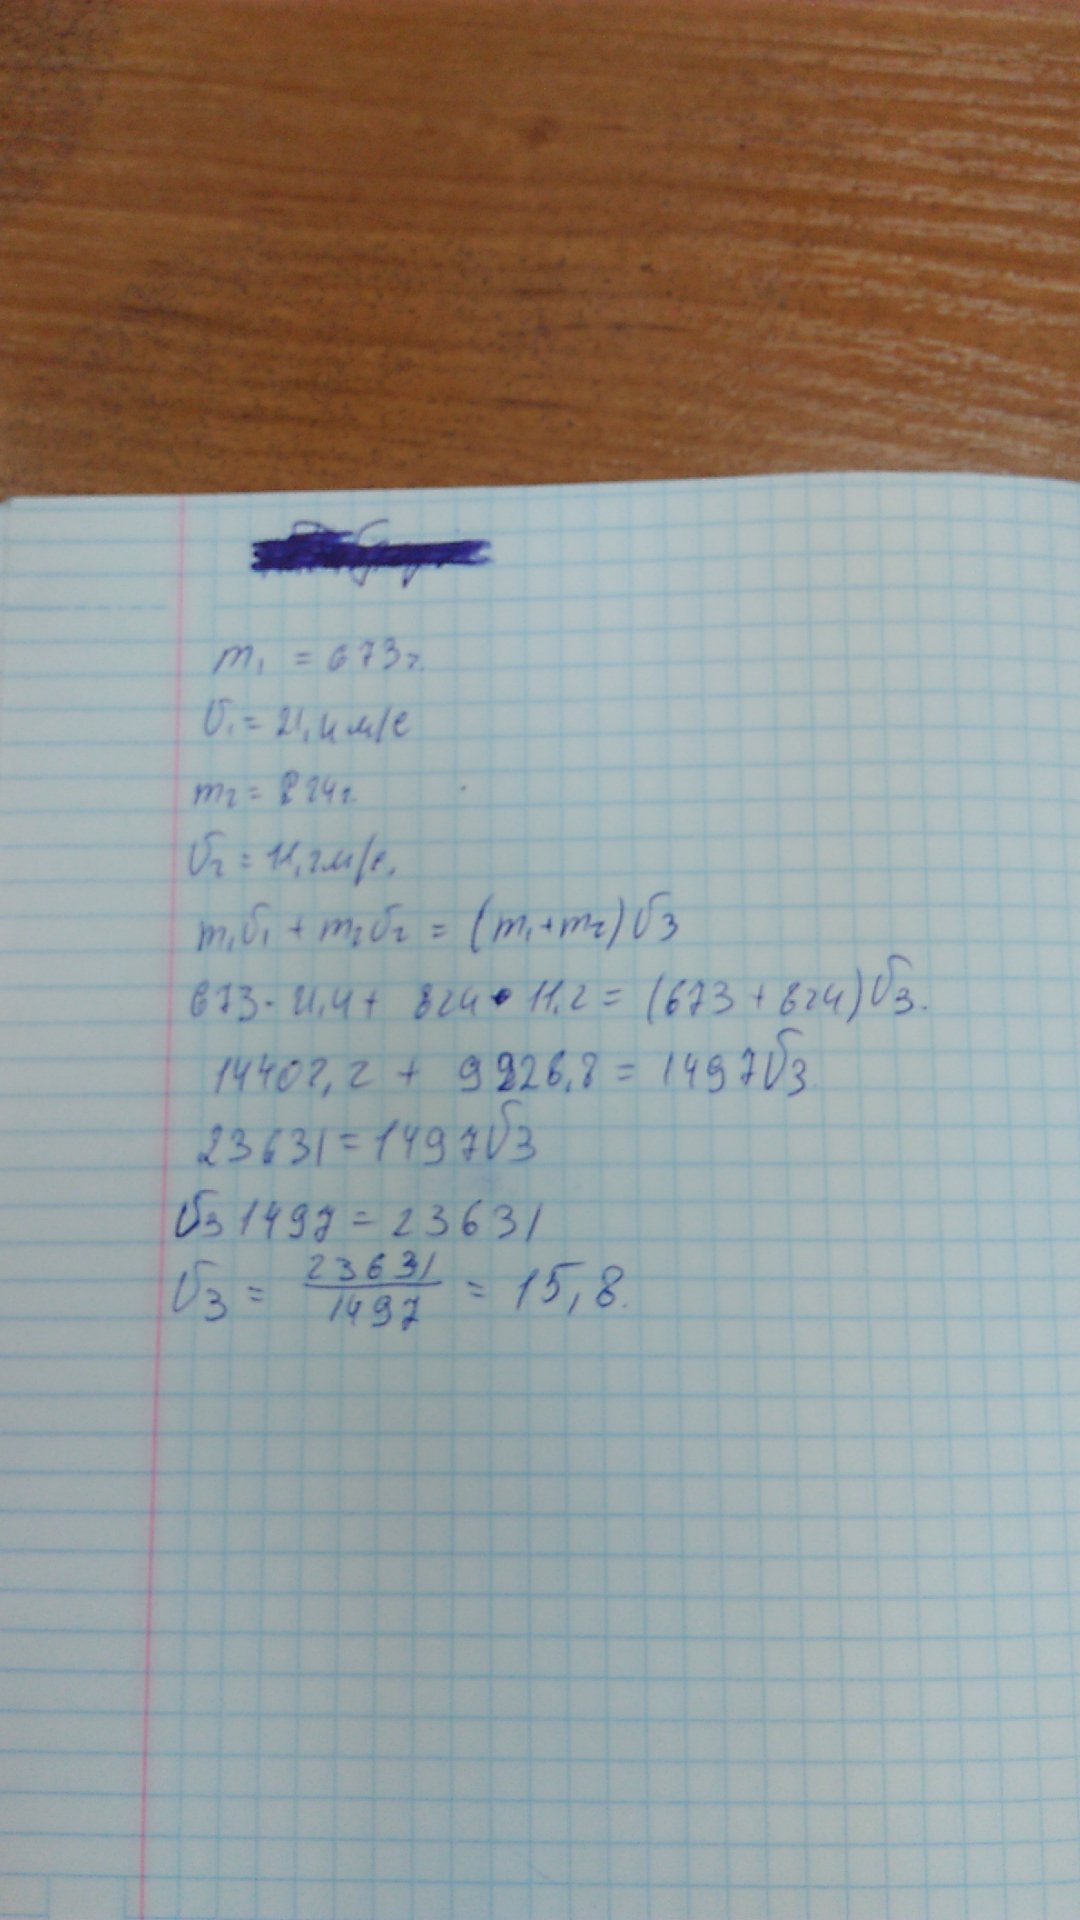 m₁ = 673 г.
υ₁ = 21,4 м/с
m₂ = 824 г.
υ₂ = 11,2 м/с.
m₁υ₁ + m₂υ₂ = (m₁+m₂)υ₃
673 · 21,4 + 824 · 11,2 = (673 + 824)υ₃.
14402,2 + 9226,8 = 1497υ₃
23631 = 1497υ₃
υ₃ 1497 = 23631
υ₃ = 23631/1497 = 15,8.